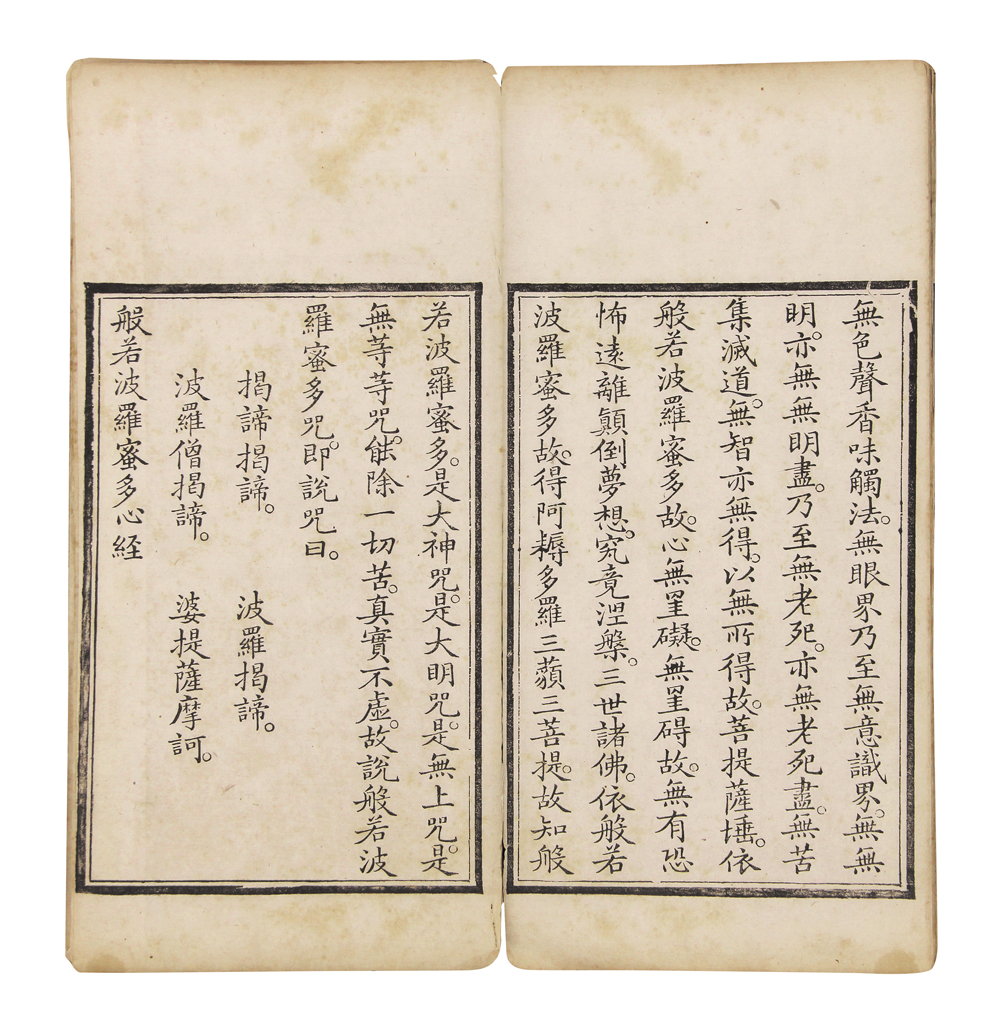 無色聲香味觸法。無眼界乃至無意識界。無無
明。亦無無明盡。乃至無老死。亦無老死盡。無苦
集滅道。無智亦無得。以無所得故。菩提薩埵。依
般若波羅蜜多故。心無罣礙。無罣碍故。無有恐
怖遠離顛倒夢想。究竟涅槃。三世諸佛。依般若
波羅蜜多故。得阿耨多羅三藐三菩提。故知般
若波羅蜜多。是大神咒。是大明咒。是無上咒。是
無等等咒。能除一切苦。真實不虛。故說般若波
羅蜜多咒。即說咒曰。
揭諦揭諦。 波羅揭諦。
波羅僧揭諦。 婆提薩摩訶。
般若波羅蜜多心経